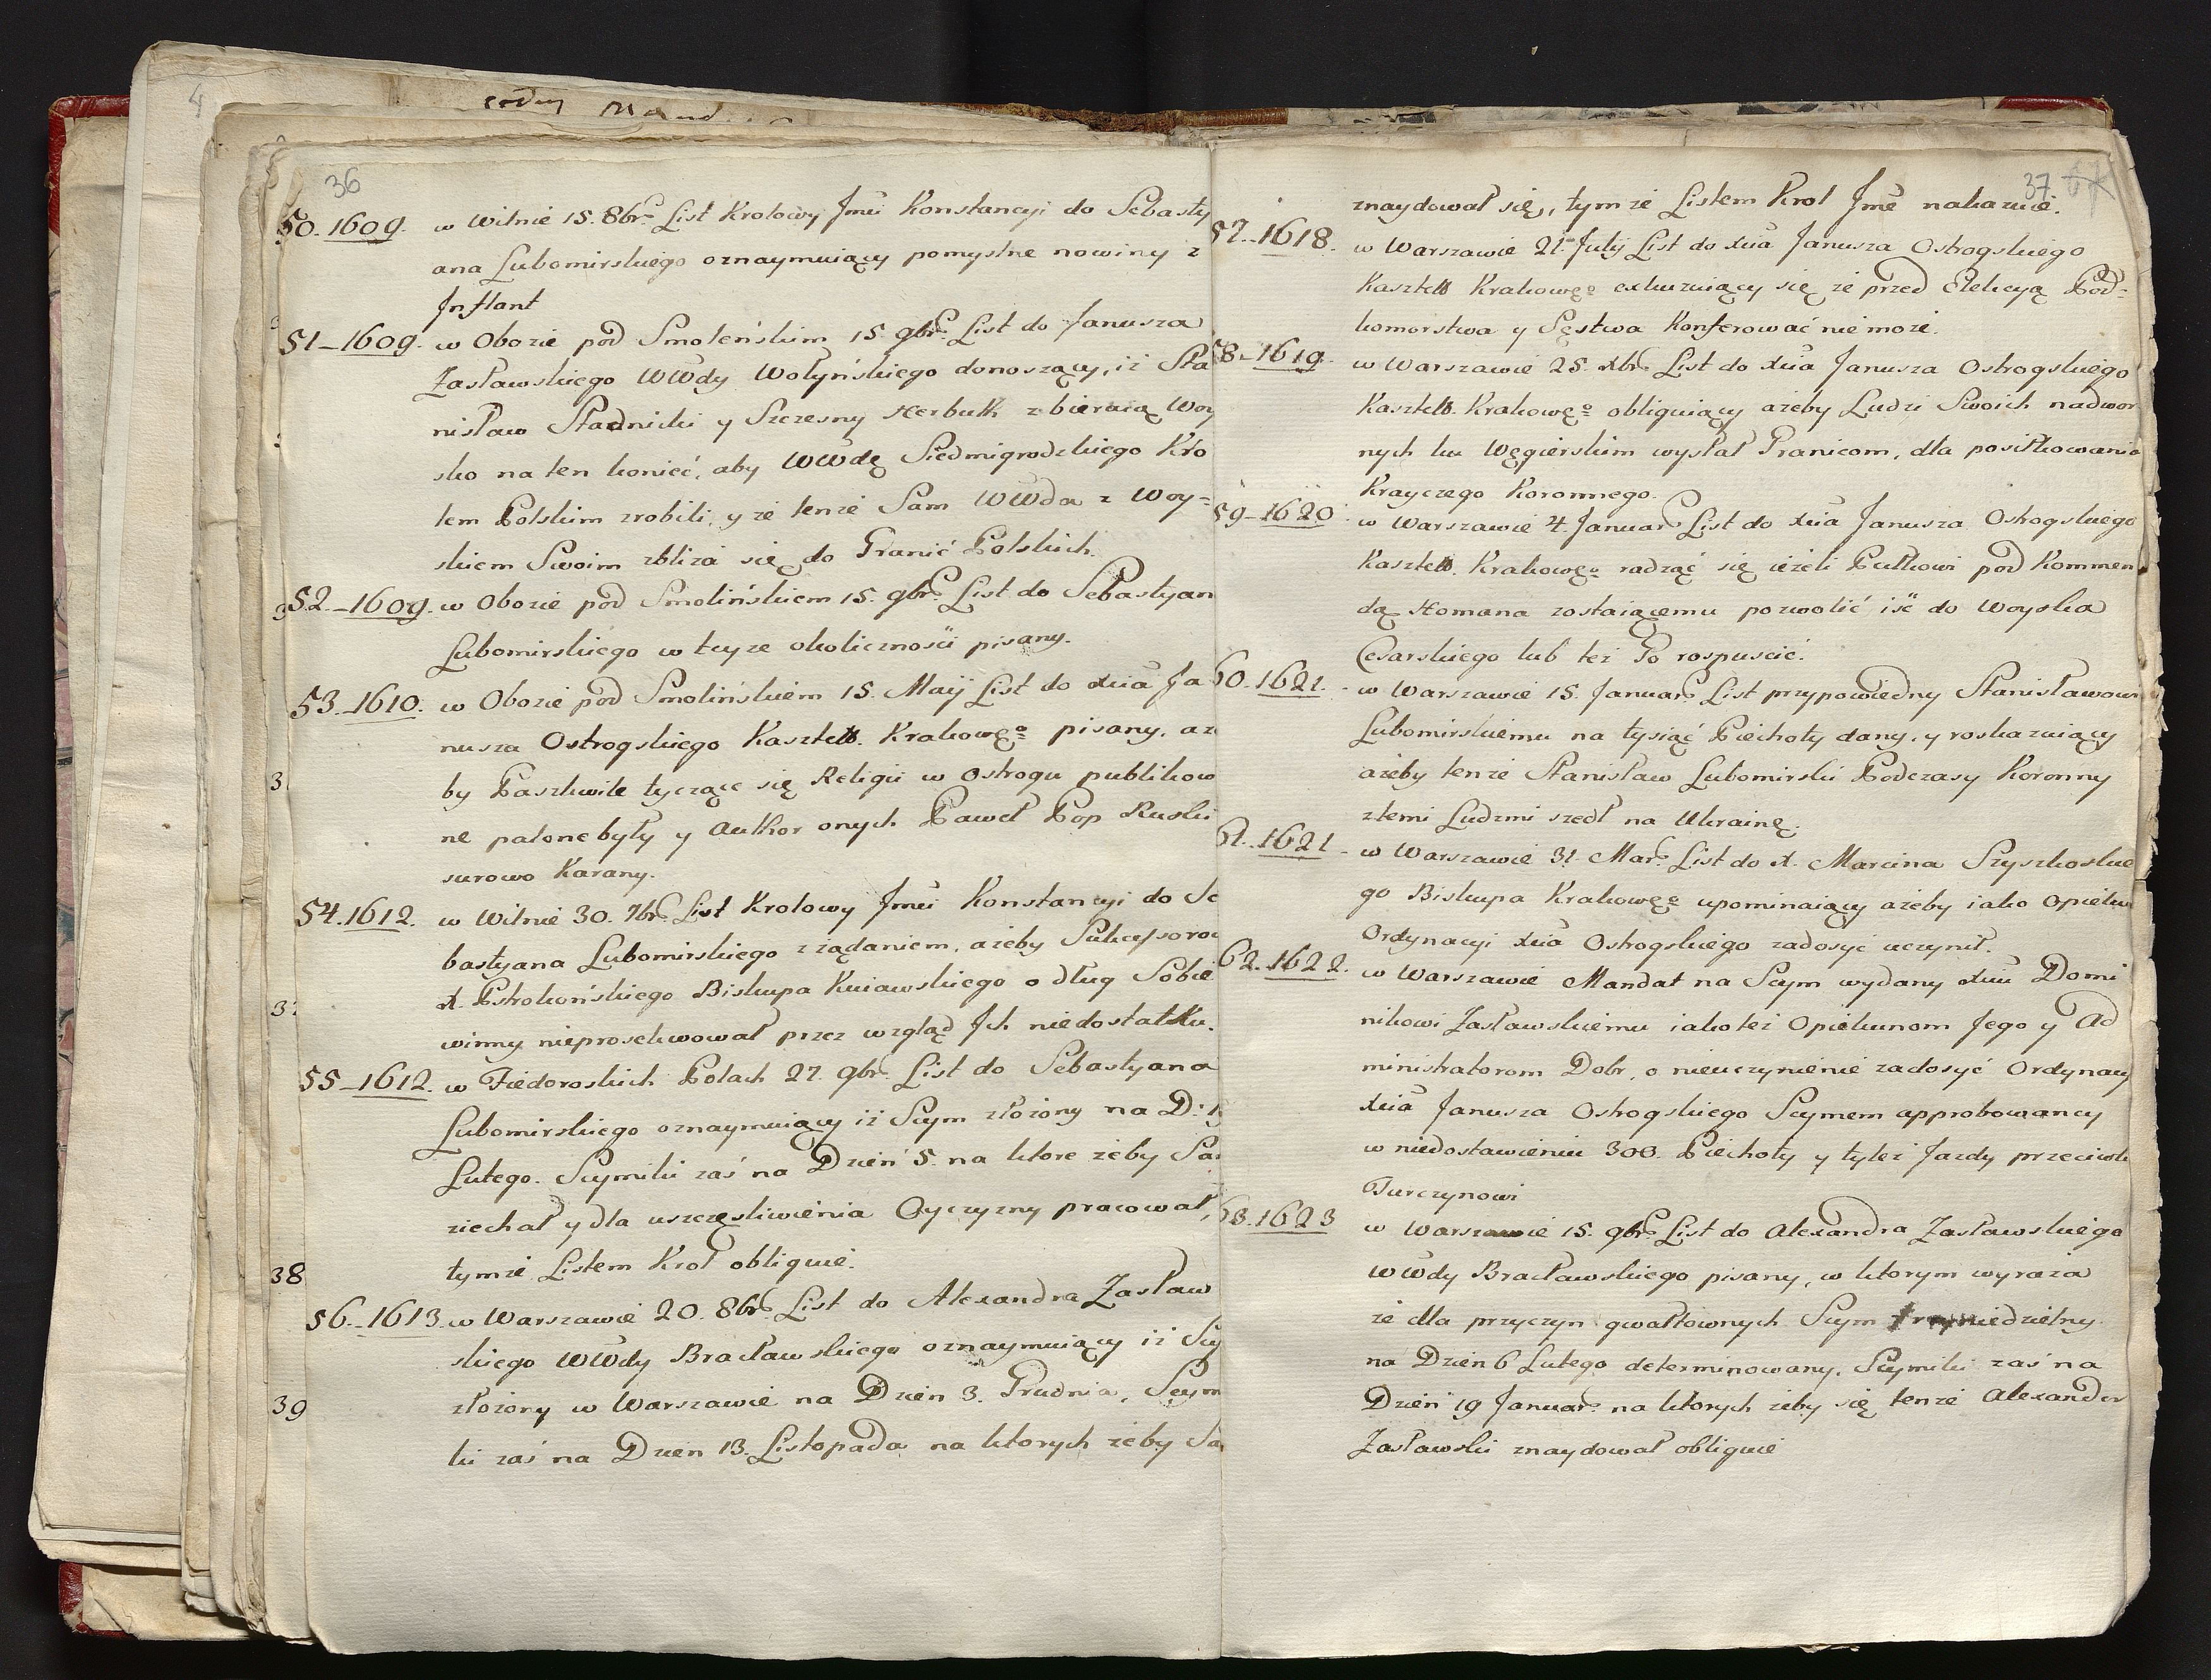 36
50. 1609. w Wilnie 15. 8br. List Krolowy Jmći Konstancyi do Sebasty
ana Lubomirskiego oznaymuiący pomyslne nowiny z
Jnflant
51 - 1609. w Obozie pod Smoleńskim 15. 9br. List do Janusza
Zasławskiego WWdy Wołyńskiego donoszący, iż Sta
nisław Stadnicki y Szczesny Herbutt zbieraią Woy
sko na ten konieć, aby WWdę Siedmigrodzkiego Kro
lem Polskim zrobili, y że tenże Sam WWda z Woy=
skiem Swoim zbliża się do Granić Polskich.
52. - 1609. w Obozie pod Smolińskiem 15. 9br. List do Sebastyan
Lubomirskiego w teyże okolicznosii pisany.
53. - 1610. w Obozie pod Smolińskiem 15. Maij List do Xcia Ja
nusza Ostrogskiego Kasztell. Krakowgo pisany, aże
by Paszkwile tyczące się Religii w Ostrogu publikow
ne palone były y Author onych Paweł Pop Ruski
surowo Karany.
54. 1612. w Wilnie 30. 7br. List Krolowy Jmći Konstancyi do Se
bastyana Lubomirskiego z żądaniem, ażeby Sukcessorow
X. Pstrokońskiego Biskupa Kuiawskiego o dług Sobie
winny nieprosekwował przez wzgląd Jch niedostatku.
55 - 1612. w Fiedoroskich Polach 27. 9br. List do Sebastyana
Lubomirskiego oznaymuiący iż Seym złożony na D: 19
Lutego. Seymiki zaś na Dzień 5. na ktore żeby Sam
ziechał y dla uszczęsliwienia Oyczyzny pracował,
tymże Listem Krol obliguie.
56. - 1613. w Warszawie 20. 8br. List do Alexandra Zasław
skiego WWdy Bracławskiego oznaymuiący iż Sey
złożony w Warszawie na Dzien 3. Grudnia, Seym
ki zaś na Dzien 13. Listopada na ktorych żeby Sam
38
39
37.
znaydował się, tymże Listem Krol Jmć nakazuie.
57. - 1618. w Warszawie 21. Julij List do Xcia Janusza Ostrogskiego
Kasztell Krakowgo exkuzuiący się że przed Elekcyą Pod=
komorstwa y Sęstwa Konferować nie może.
58 - 1619. w Warszawie 25. Xbr. List do Xcia Janusza Ostrogskiego
Kasztell. Krakowgo obliguiący ażeby Ludzi Swoich nadwor
nych ku Węgierskim wysłał Granicom, dla posiłkowania
Krayczego Koronnego.
59 - 1620. w Warszawie 4. Januar. List do Xcia Janusza Ostrogskiego
Kasztell. Krakowgo radząć się ieżeli Pułkowi pod Kommen
dą Homana zostaiącemu pozwolić iść do Woyska
Cesarskiego lub też Go rospuscić.
60. 1621. - w Warszawie 15. Januar. List przypowiedny Stanisławowi
Lubomirskiemu na tysiąć Piechoty dany, y roskazuiący
ażeby tenże Stanisław Lubomirski Podczasy Koronny
ztemi Ludzmi szedł na Ukrainę.
61. 1621 - w Warszawie 31. Mar. List do X. Marcina Szyszkoskie
go Biskupa Krakowgo upominaiący ażeby iako Opiekun
Ordynacyi Xcia Ostrogskiego zadosyć uczynił.
62. 1622. w Warszawie Mandat na Seym wydany Xciu Domi
nikowi Zasławskiemu iako też Opiekunom Jego y Ad
ministratorom Dobr, o nieuczynienie zadosyć Ordynacy
Xcia Janusza Ostrogskiego Seymem approbowaney
w niedostawieniu 300. Piechoty y tyleż Jazdy przeciwk
Turczynowi
63. 1623 w Warszawie 15. 9br. List do Alexandra Zasławskiego
WWdy Bracławskiego pisany, w ktorym wyraża
że dla przyczyn gwałtownych Seym trzyniedzielny
na Dzien 6 Lutego determinowany, Seymiki zaś na
Dzień 19 Januar. na ktorych żeby się tenże Alexander
Zasławski znaydował obliguie